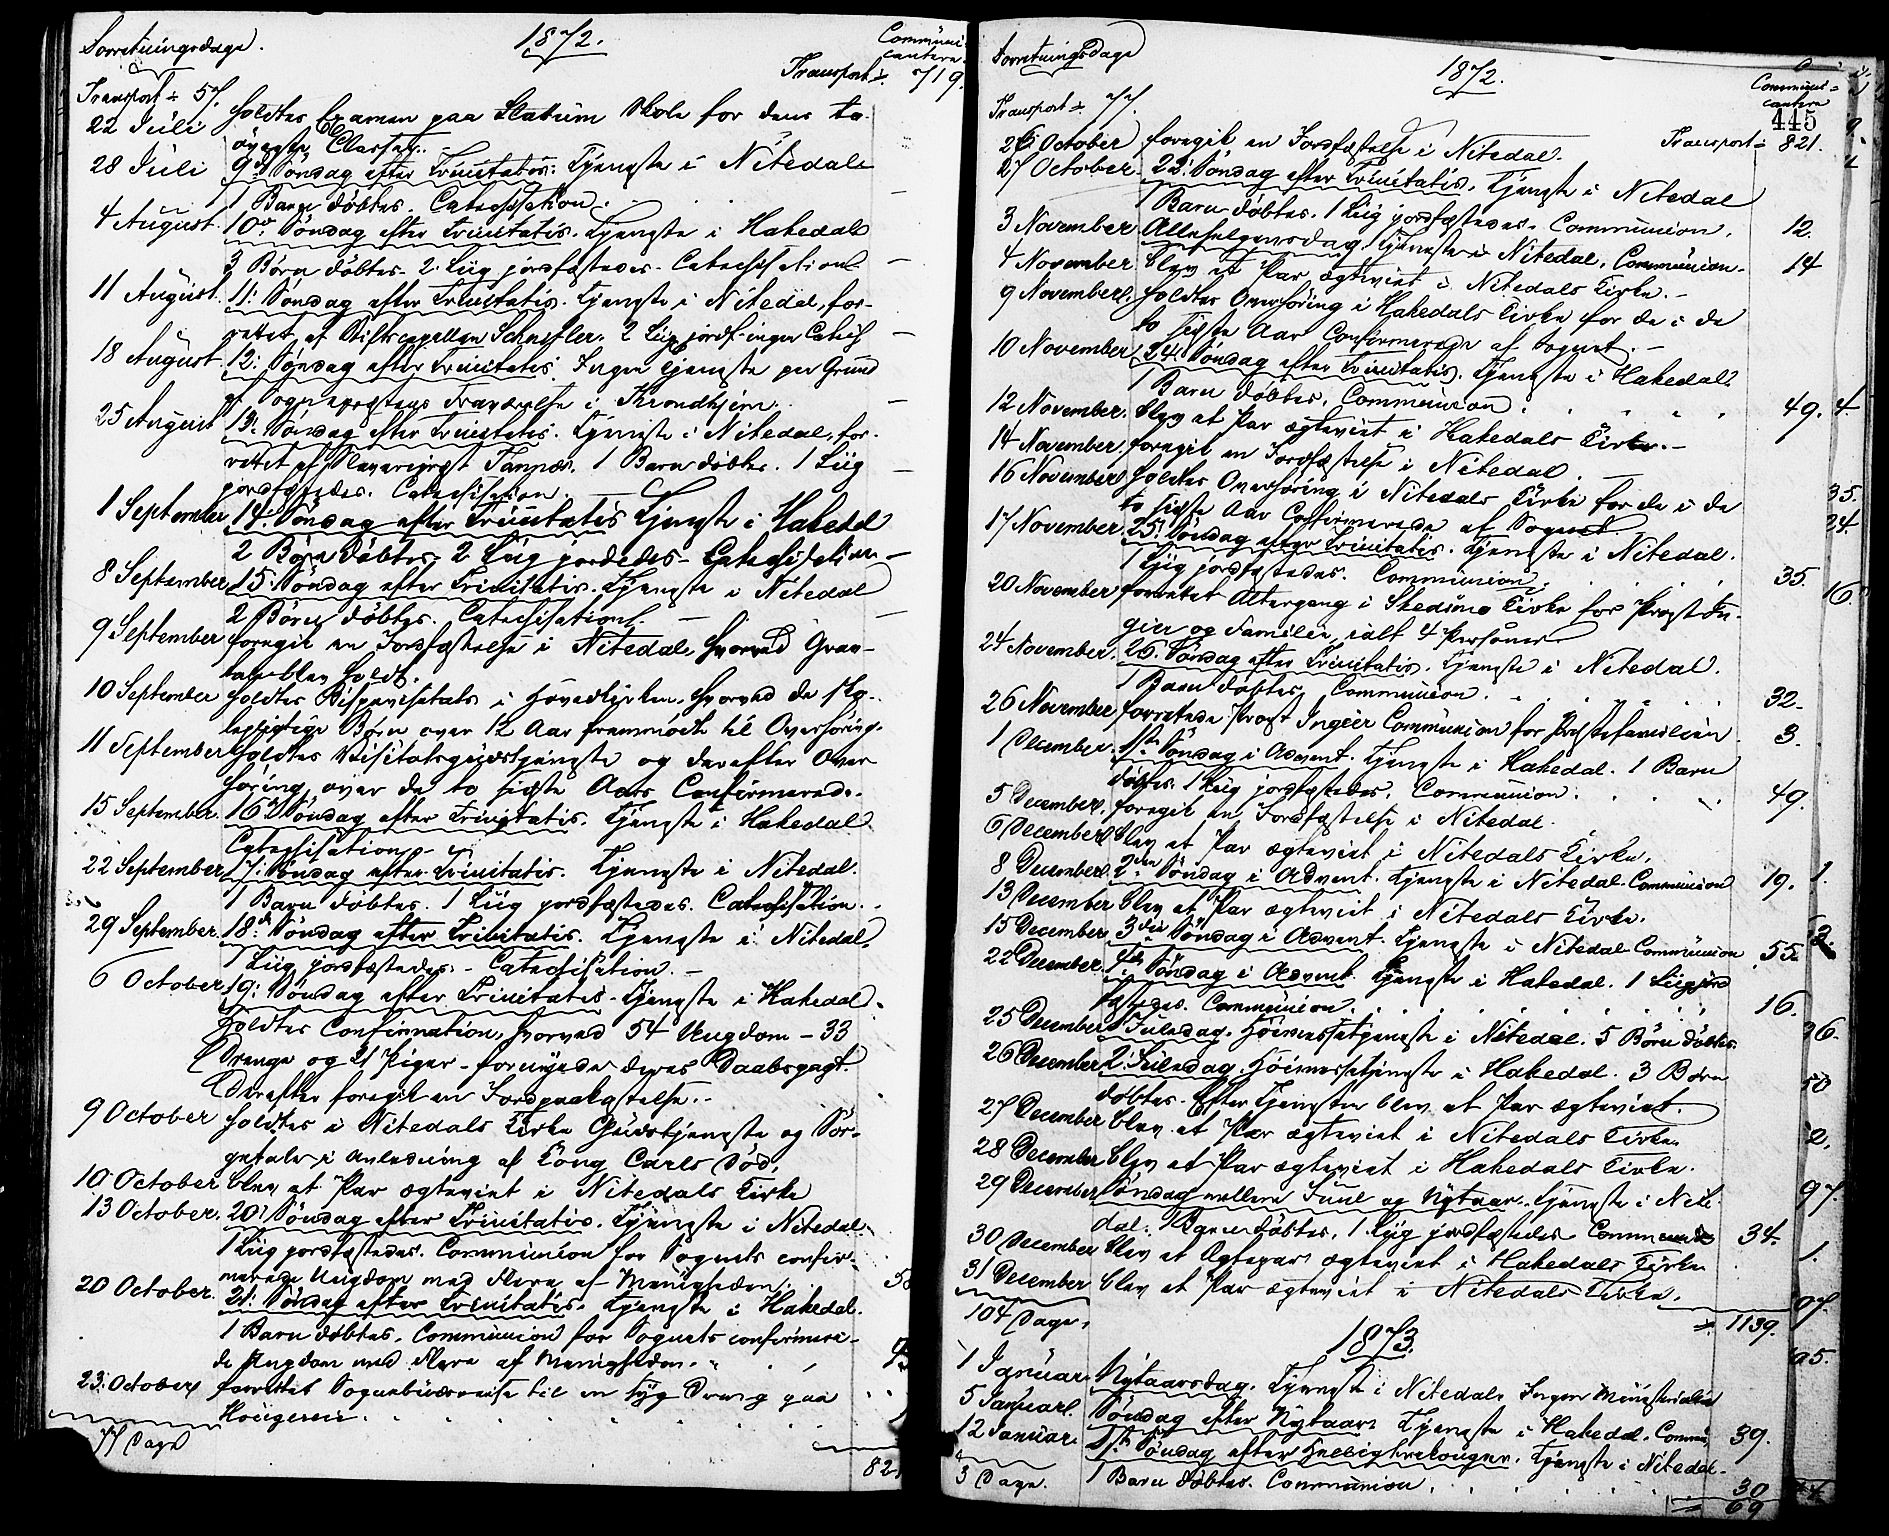 Forretningsdage. 1872. Communi-
cantere
Transport 57. Transport 719.
22 Juli holdtes Examen paa Skole for dens to
øverste Classer.
28 Juli 9de Søndag efter Trinitatis. Tjeneste i Nitedal
1 Barn døbtes. Catechisation. —
4 August. 10de Søndag efter Trinitatis. Tjeneste i Hakedal
3 Børn døbtes. 2 Liig jordfæstedes. Catechisation —
11 August. 11: Søndag efter Trinitatis. Tjeneste i Nitedal, for-
rettet af Stiftscapellan 2 Liig jordf. ingen Catech —
18 August. 12: Søndag efter Trinitatis. Ingen Tjeneste paa Grund
af Sognepræstens Fraværelse i Throndhjem. —
25 August 13: Søndag efter Trinitatis. Tjeneste i Nitedal, for-
rettet af Slavepræst 1 Barn døbtes. 1 Liig
jordfæstedes. Catechisation. —
1 September 14de Søndag efter Trinitatis Tjeneste i Hakedal
2 Børn døbtes. 2 Liig jordedes. Catechisation —
8 September 15. Søndag efter Trinitatis. Tjeneste i Nitedal
2 Børn døbtes. Catechisation. —
9 September foregik en Jordfæstelse i Nitedal, hvorved Grav-
tale blev holdt.
10 September holdtes Bispevisitats i Hovedkirken, hvorved de sko-
lepligtige Børn over 12 Aar fremmødte til Overhøring.
11 September holdtes Visitatsgudstjeneste og derefter Over-
høring over de to sidste Aars Confirmerede.
15 September. 16de Søndag efter Trinitatis. Tjeneste i Hakedal
Catechisation. —
22 September 17: Søndag efter Trinitatis. Tjeneste i Nitedal.
1 Barn døbtes. 1 Liig jordfæstedes. Catechisation.
29 September. 18de Søndag efter Trinitatis. Tjeneste i Nitedal.
1 Liig jordfæstedes. - Catechisation. —
6 October 19: Søndag efter Trinitatis. Tjeneste i Hakedal.
Holdtes Confirmation, hvorved 54 Ungdom - 33
Drenge og 21 Piger - fornyede deres Daabspagt.
Derefter foregik en Jordpaakastelse.
9 October holdtes i Nitedals Kirke Gudstjeneste og Sør-
getale i Anledning af Kong Carls Død.
10 October blev et Par ægteviet i Nitedals Kirke
13 October. 20: Søndag efter Trinitatis. Tjeneste i Nitedal.
1 Liig jordfæstedes. Communion for Sognets confir-
merede Ungdom med Flere af Menigheden.
20 October. 21: Søndag efter Trinitatis. Tjeneste i Hakedal.
1 Barn døbtes. Communion for Sognets confirmere-
de Ungdom med Flere af Menigheden.
23: October forrettet Sognebudsreise til en syg Dreng paa
77 Dage
82
Forretningsdage 1872. Communi-
cantere
445
Transport 77. Transport 821.
26 October foregik en Jordfæstelse i Nitedal.
27 October. 22: Søndag efter Trinitatis. Tjeneste i Nitedal
1 Barn døbtes. 1 Liig jordfæstedes. Communion. 12.
3 November Allehelgensdag. Tjeneste i Nitedal. Communion. 14
4 November blev et Par ægteviet i Nitedals Kirke. —
9 November. holdtes Overhøring i Hakedals Kirke for de i de
to sidste Aar Confirmerede af Sognet. —
10 November 24: Søndag efter Trinitatis. Tjeneste i Hakedal.
1 Barn døbtes. Communion 49. 4
12 November. blev et Par ægteviet i Hakedals Kirke. —
14 November. foregik en Jordfæstelse i Nitedal. —
16 November holdtes Overhøring i Nitedals Kirke for de i de
to sidste Aar Confirmerede af Sognet 35.
17 November 25: Søndag efter Trinitatis. Tjeneste i Nitedal. 24.
1 Liig jordfæstedes. Communion. 35.
20 November forrettet Altergang i Skedsmo Kirke for Provst In- 16.
gier og Familie, ialt 4 Personer
24 November. 26: Søndag efter Trinitatis. Tjeneste i Nitedal.
1 Barn døbtes. Communion. 32.
26 November forrettede Provst Ingier Communion for Præstefamilien 3.
1 December. 1ste Søndag i Advent. Tjeneste i Hakedal. 1 Barn
døbtes. 1 Liig jordfæstedes. Communion. 49.
5 December. foregik en Jordfæstelse i Nitedal.
6 December blev et Par ægteviet i Nitedals Kirke.
8 December 2den Søndag i Advent. Tjeneste i Nitedal. Communion 19. 1.
13 December blev et Par ægteviet i Nitedals Kirke.
15 December 3die Søndag i Advent. Tjeneste i Nitedal Communion 55.
22 December. 4de Søndag i Advent. Tjeneste i Hakedal. 1 Liig jord-
fæstedes. Communion. 16.
25 December Juledag. Høimessetjeneste i Nitedal. 5 Børn døbtes. 36.
26 December 2. Juledag. Høimessetjeneste i Hakedal. 3 Børn
døbtes. Efter Tjenesten blev et Par ægteviet. 50
27 December blev et Par ægteviet i Nitedals Kirke.
28 December blev et Par ægteviet i Hakedals Kirke. 2.
29 December Søndag mellem Juul og Nytaar. Tjeneste i Nite- 97.
dal. 1 Barn døbtes. 1 Liig jordfæstedes Communion 34.
30 December blev et Ægtepar ægteviet i Hakedals Kirke 1.
31 December blev et Par ægteviet i Nitedals Kirke.
104 Dage. 1139.
1873.
1 Januar. Nytaarsdag. Tjeneste i Nitedal. Ingen Ministerialia
5 Januar. Søndag efter Nytaar. Tjeneste i Hakedal. Commun. 39.
12 Januar. 1ste Søndag efter Helligtrekonger. Tjeneste i Nitedal.
1 Barn døbtes. Communion 30
3 Dage. 69